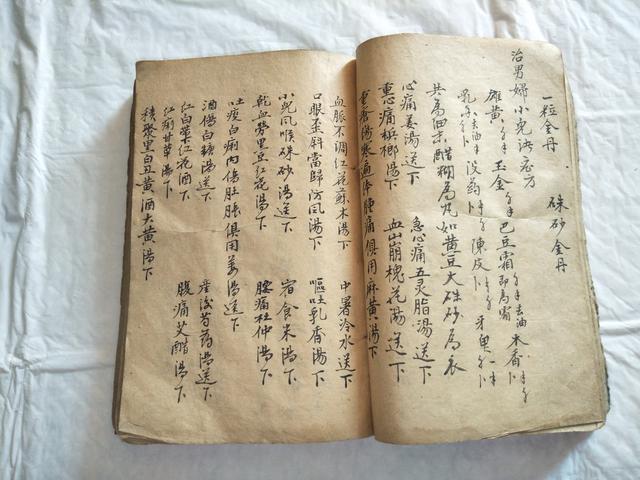 一粒金丹　硃砂金丹
治男婦小兒諸症方
雄黃　玉金　巴豆霜即為霜去油　木香
乳香去油　沒药　陳皮　牙皂
共為細末醋糊為丸如黃豆大硃砂為衣
心痛姜湯送下　急心痛五灵脂湯送下
重心痛梹榔湯下　血山崩槐花湯送下
重香湯寒遍体腫痛俱用麻黃湯下
血脈不調紅花蘇木湯下　中暑冷水送下
口眼歪斜當歸防风湯下　嘔吐乳香湯下
小兒风喉硃砂湯送下　宿食米湯下
乾血勞黑豆紅花湯下　腰痛杜仲湯下
吐痰白痢內傷肚脹俱用姜湯送下
酒傷白糖湯送下　產後芎药湯送下
紅白帶紅花酒下　腹痛艾醋湯下
紅痢甘草湯下
積聚黑白丑黃酒大黃湯下